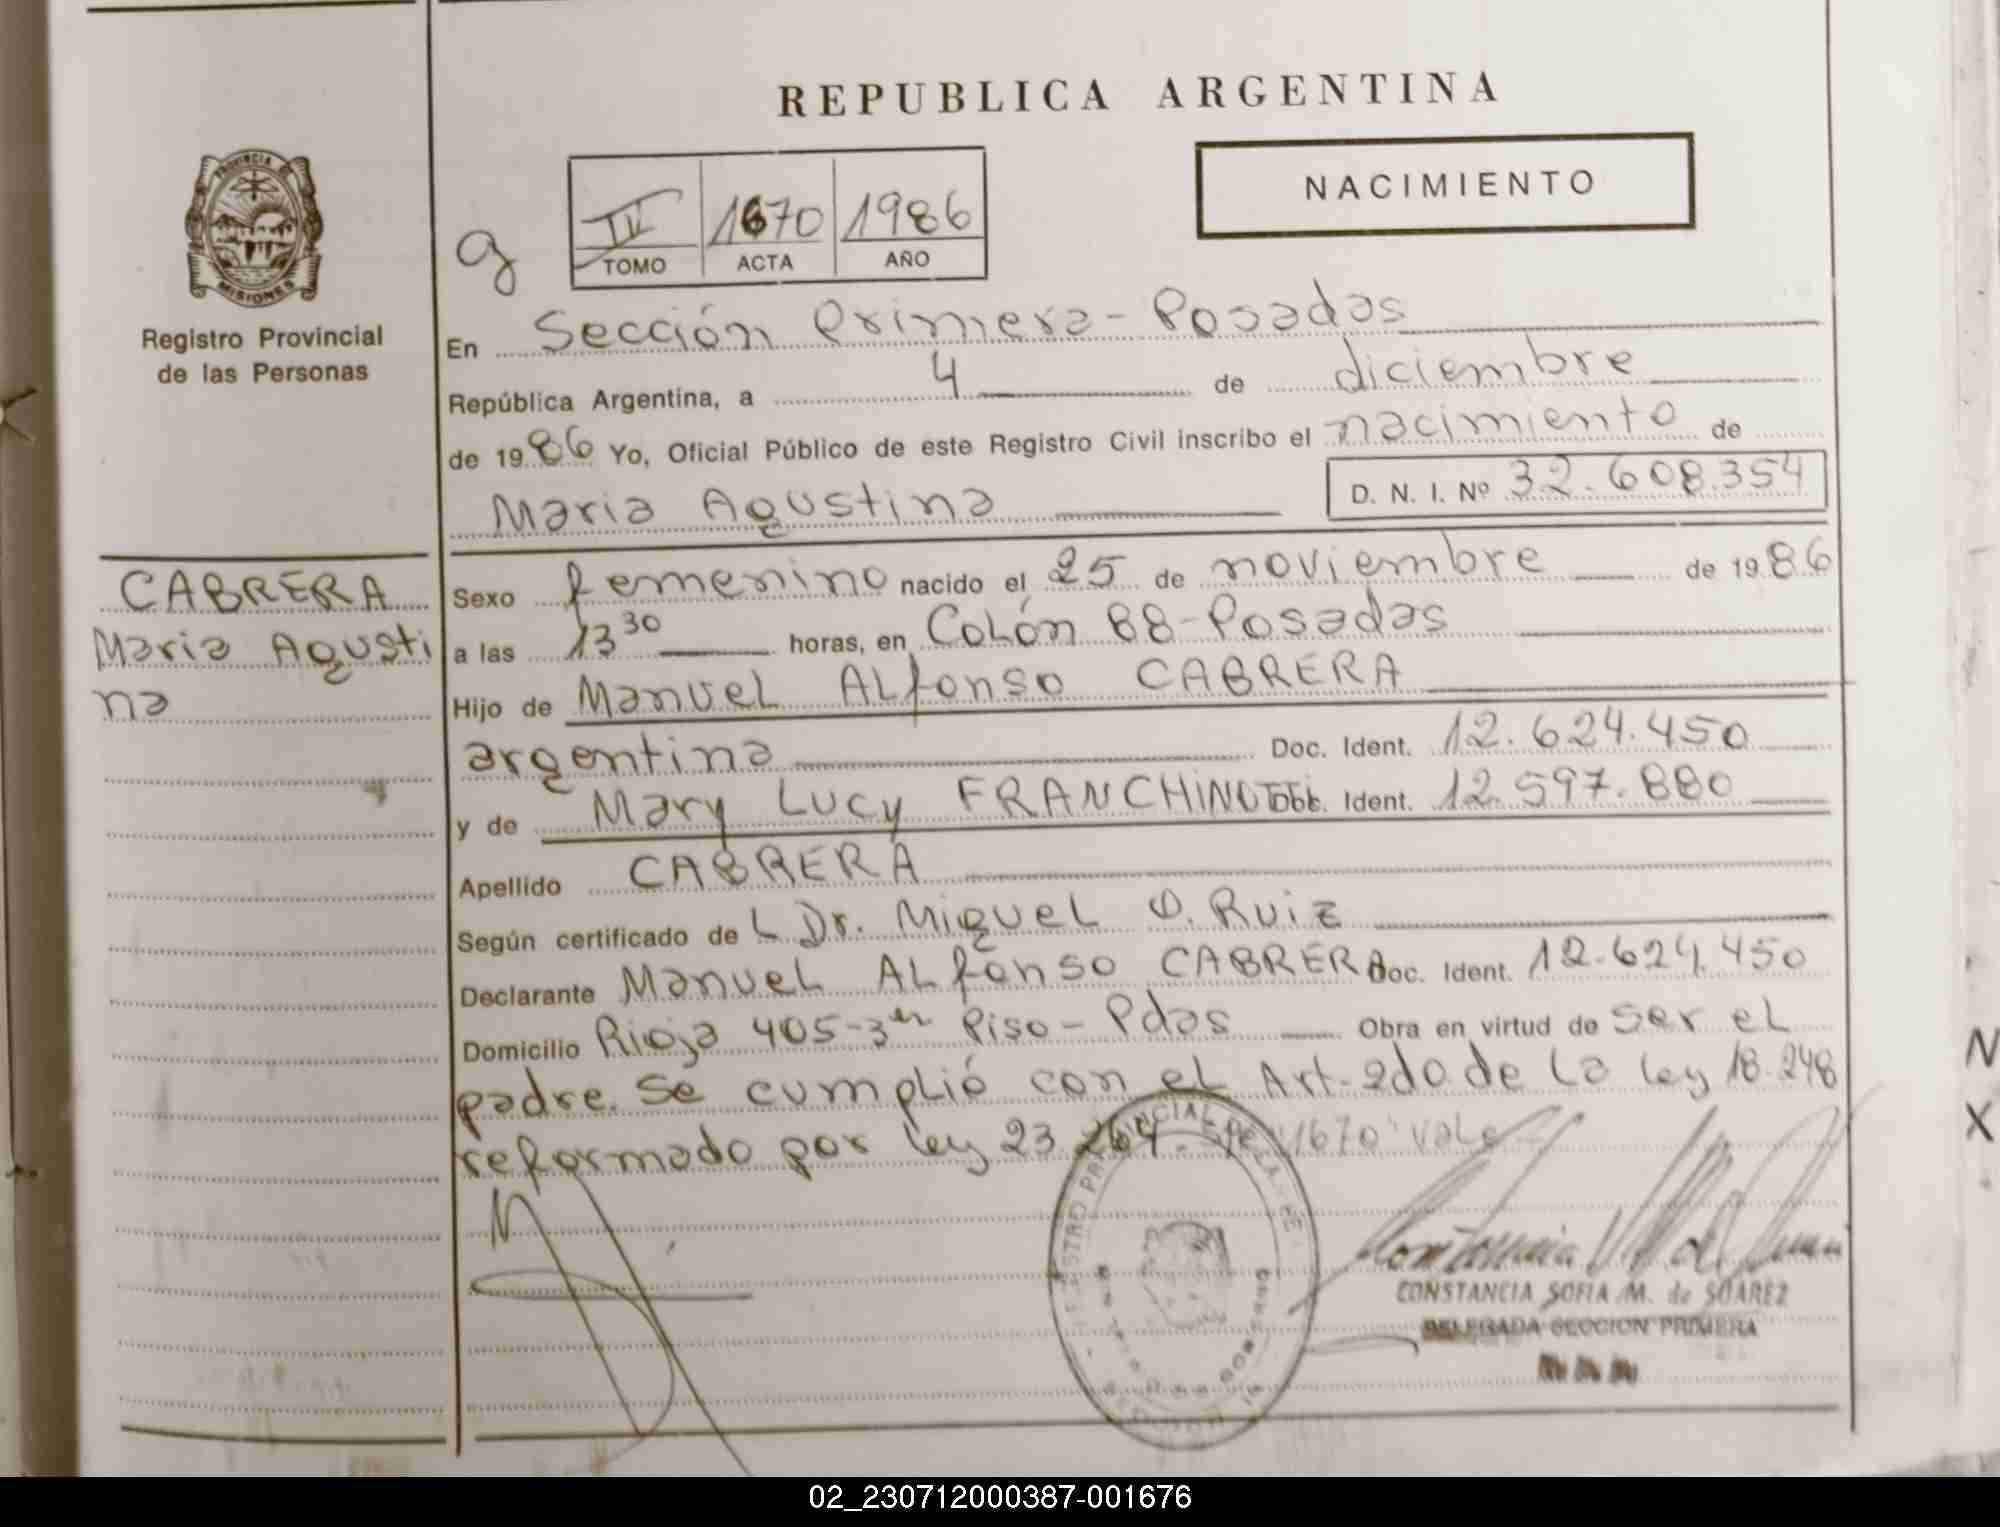 REPUBLICA ARGENTINA
NACIMIENTO
PROVINCIA DE
MISIONES
Registro Provincial
de las Personas
g
IV 1670 1986
TOMO ACTA AÑO
En Sección Primera - Posadas
República Argentina, a 4 de diciembre
de 1986 Yo, Oficial Público de este Registro Civil inscribo el nacimiento de
Maria Agustina D. N. I. Nº 32.608.354
CABRERA
Maria Agusti
na
Sexo femenino nacido el 25 de noviembre de 1986
a las 13 30 horas, en Colón 88 - Posadas
Hijo de Manuel Alfonso CABRERA
argentina Doc. Ident. 12.624.450
y de Mary Lucy FRANCHINOTTI Doc. Ident. 12.597.880
Apellido CABRERA
Según certificado de L Dr. Miguel O. Ruiz
Declarante Manuel Alfonso CABRERA Doc. Ident. 12.624.450
Domicilio Rioja 405-3er Piso - Pdas Obra en virtud de ser el
padre. Se cumplió con el Art. 2do de la ley 18.248
reformado por ley 23.264 - 1670 vale
CONSTANCIA SOFIA M. de SUAREZ
DELEGADA SECCION PRIMERA
N
X
02_230712000387-001676